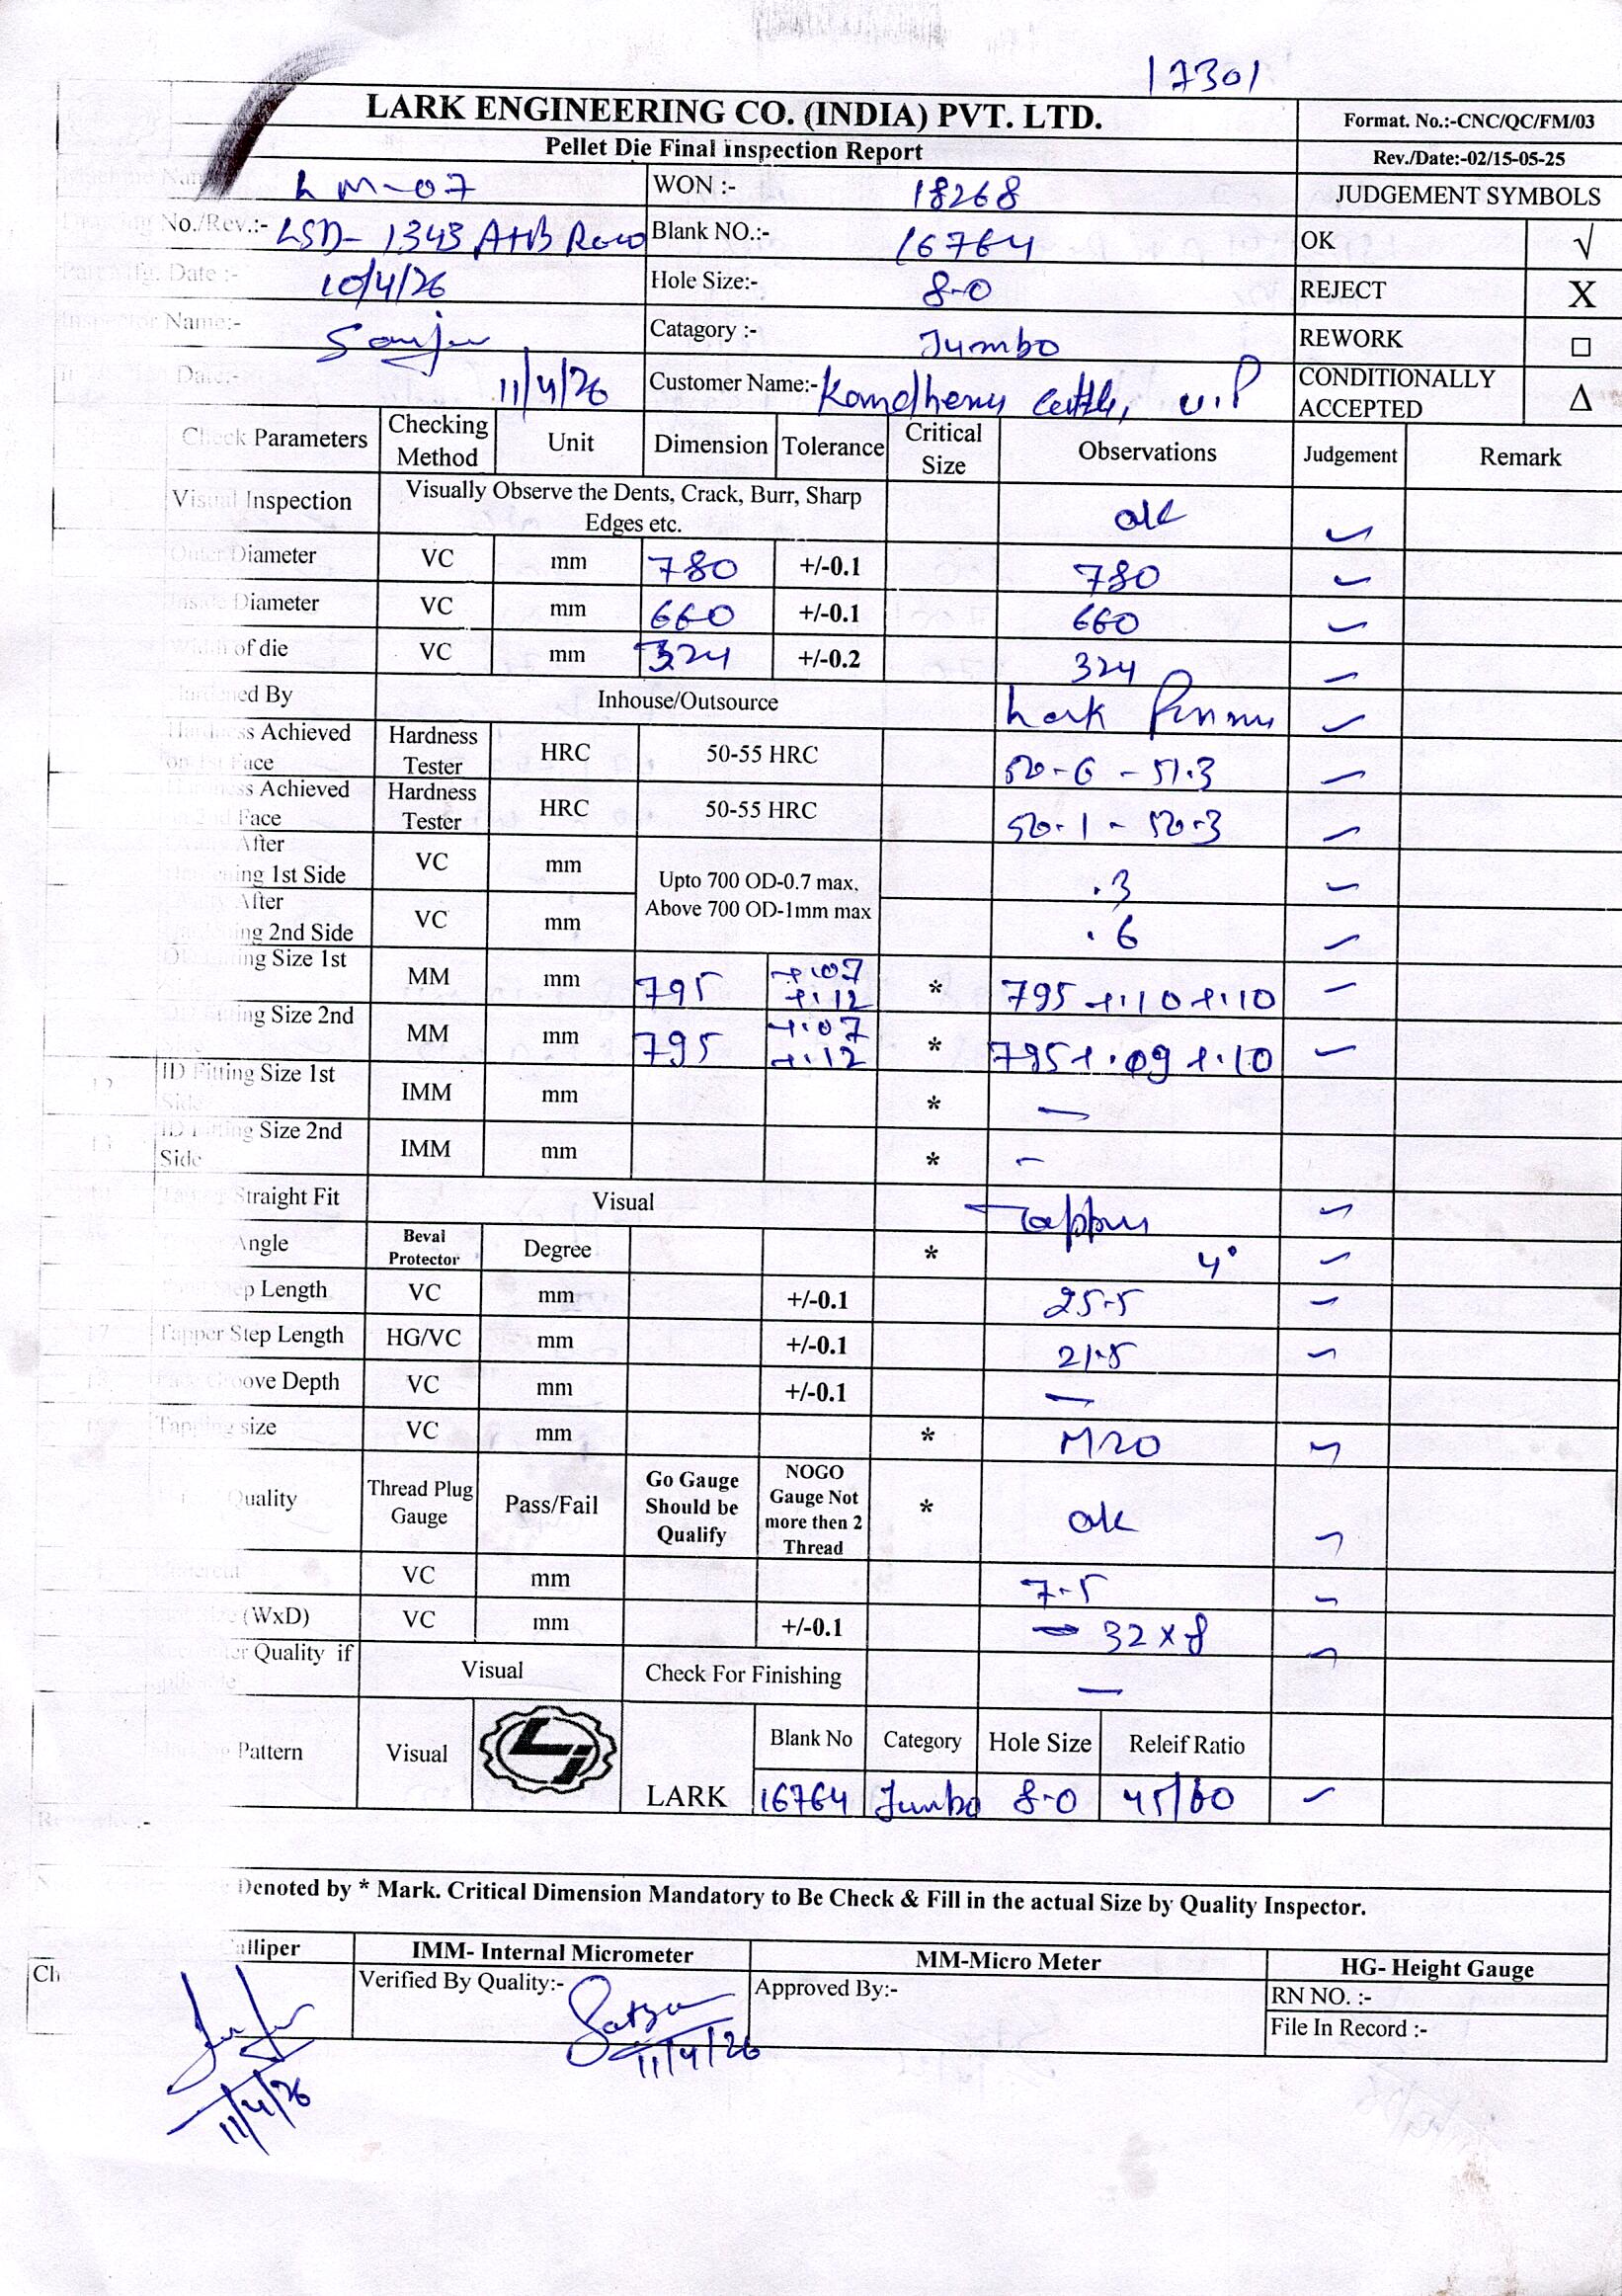 17301
LARK ENGINEERING CO. (INDIA) PVT. LTD.
Format. No.:-CNC/QC/FM/03
Pellet Die Final Inspection Report
Rev./Date:-02/15-05-25
LM-07
WON :- 18268
JUDGEMENT SYMBOLS
No./Rev.:- LSD-1343 A+B Row
Blank NO.:- 16764
OK √
Date :- 10/4/26
Hole Size:- 8-0
REJECT X
Name:- Sanju
Catagory :- Jumbo
REWORK □
Date:- 11/4/26
Customer Name:- Kamdhenu Cattle, U.P
CONDITIONALLY ACCEPTED Δ
Check Parameters Checking Method Unit Dimension Tolerance Critical Size Observations Judgement Remark
Visual Inspection Visually Observe the Dents, Crack, Burr, Sharp Edges etc. ok ✓
Outer Diameter VC mm 780 +/-0.1 780 ✓
Inside Diameter VC mm 660 +/-0.1 660 ✓
of die VC mm 324 +/-0.2 324 ✓
By Inhouse/Outsource Lark ✓
Achieved Face Hardness Tester HRC 50-55 HRC 50-6 - 51.3 ✓
Achieved Face Hardness Tester HRC 50-55 HRC 50-1 - 50-3 ✓
After 1st Side VC mm Upto 700 OD-0.7 max, Above 700 OD-1mm max .3 ✓
After 2nd Side VC mm .6 ✓
Size 1st MM mm 795 +.07 +.12 * 795 +.10 +.10 ✓
Size 2nd MM mm 795 +.07 +.12 * 795 +.09 +.10 ✓
ID Fitting Size 1st Side IMM mm * —
ID Fitting Size 2nd Side IMM mm * -
Straight Fit Visual Tapper ✓
Angle Beval Protector Degree * 4° ✓
Step Length VC mm +/-0.1 25-5 ✓
17 Tapper Step Length HG/VC mm +/-0.1 21.5 ✓
18 Groove Depth VC mm +/-0.1 —
19 Tapping size VC mm * M20 ✓
Quality Thread Plug Gauge Pass/Fail Go Gauge Should be Qualify NOGO Gauge Not more then 2 Thread * ok ✓
VC mm 7-5 ✓
(WxD) VC mm +/-0.1 32 x 8 ✓
Quality if Visual Check For Finishing —
Pattern Visual LARK Blank No Category Hole Size Releif Ratio
16764 Jumbo 8-0 45/60 ✓
Denoted by * Mark. Critical Dimension Mandatory to Be Check & Fill in the actual Size by Quality Inspector.
IMM- Internal Micrometer MM-Micro Meter HG- Height Gauge
Verified By Quality:- Approved By:- RN NO. :-
File In Record :-
11/4/26
11/4/26